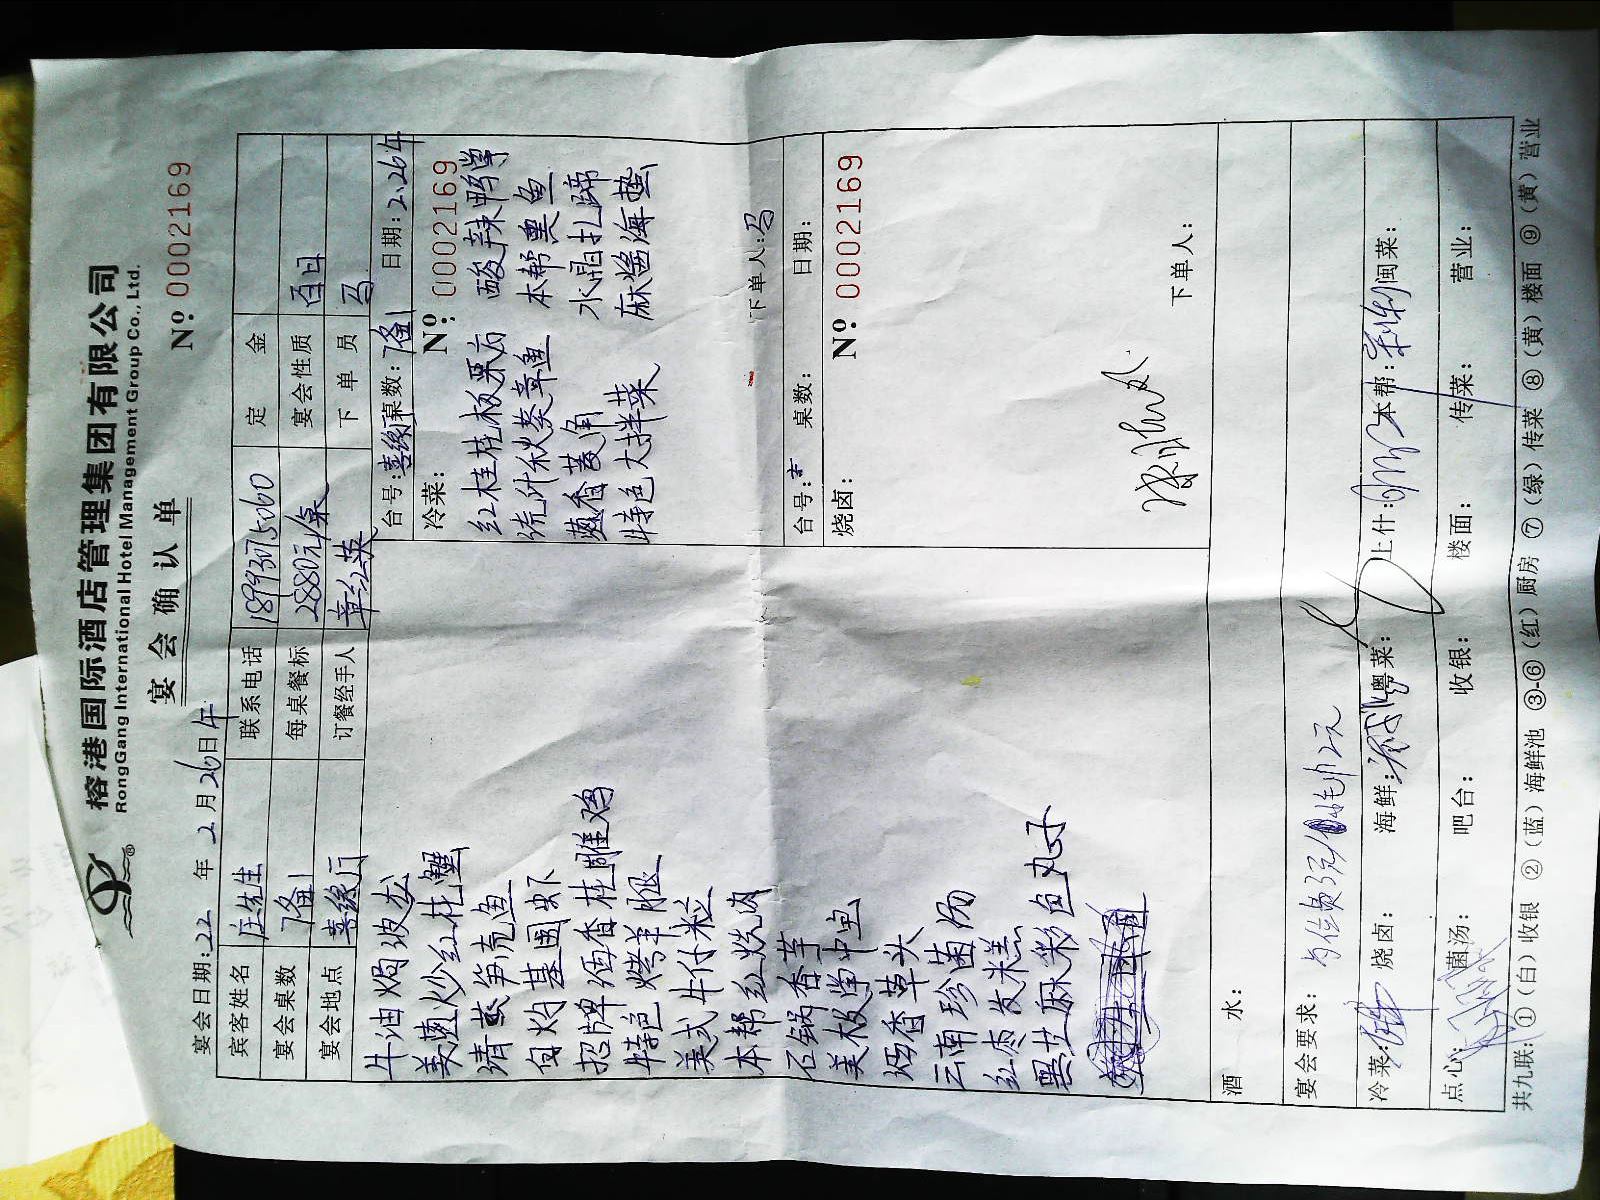 榕港国际酒店管理集团有限公司
RongGang International Hotel Management Group Co., Ltd.
宴会确认单
宴会日期:22 年 2 月 26 日 午
Nº 0002169
宾客姓名 庄先生 联系电话 18993075060 定 金
宴会桌数 每桌餐标 2880元/桌 宴会性质 百日
宴会地点 善缘厅 订餐经手人 章红英 下 单 员 马
台号:善缘厅 桌数: 日期:2.26午
冷菜: Nº: 0002169
红桂桂板栗 酸辣鸭掌
捞汁秋葵章鱼 本帮熏鱼
葱香菱角 水晶扎蹄
特色大拌菜 麻酱海蜇
下单人:马
牛油焗波龙
姜葱炒红花蟹
清蒸笋壳鱼
白灼基围虾
招牌酒香桂雕鸡
特色烤羊腿
美式牛仔粒
本帮红烧肉
石锅香芋
美极掌中宝
炳香草头
云南珍菌汤
红枣发米糕
黑芝麻彩色丸子
台号: 桌数: 日期:
烧卤: Nº 0002169
下单人:
酒 水:
宴会要求:
毛巾2元
冷菜: 烧卤: 海鲜: 粤菜: 上什: 本帮: 闽菜:
点心: 菌汤: 吧台: 收银: 楼面: 传菜: 营业:
共九联:①(白)收银 ②(蓝)海鲜池 ③-⑥(红)厨房 ⑦(绿)传菜 ⑧(黄)楼面 ⑨(黄)营业